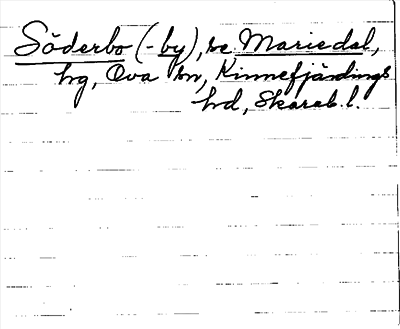 Söderbo (-by), se Mariedal,
hg, Ova sn, Kinnefjärdings
hd, Skarab. l.